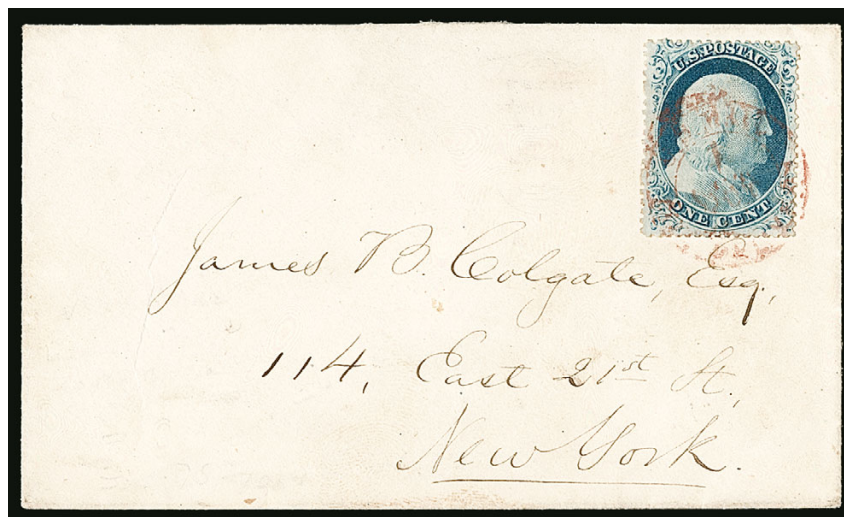 U.S. POSTAGE
ONE CENT
James B. Colgate, Esq,
114, East 21st St,
New York.